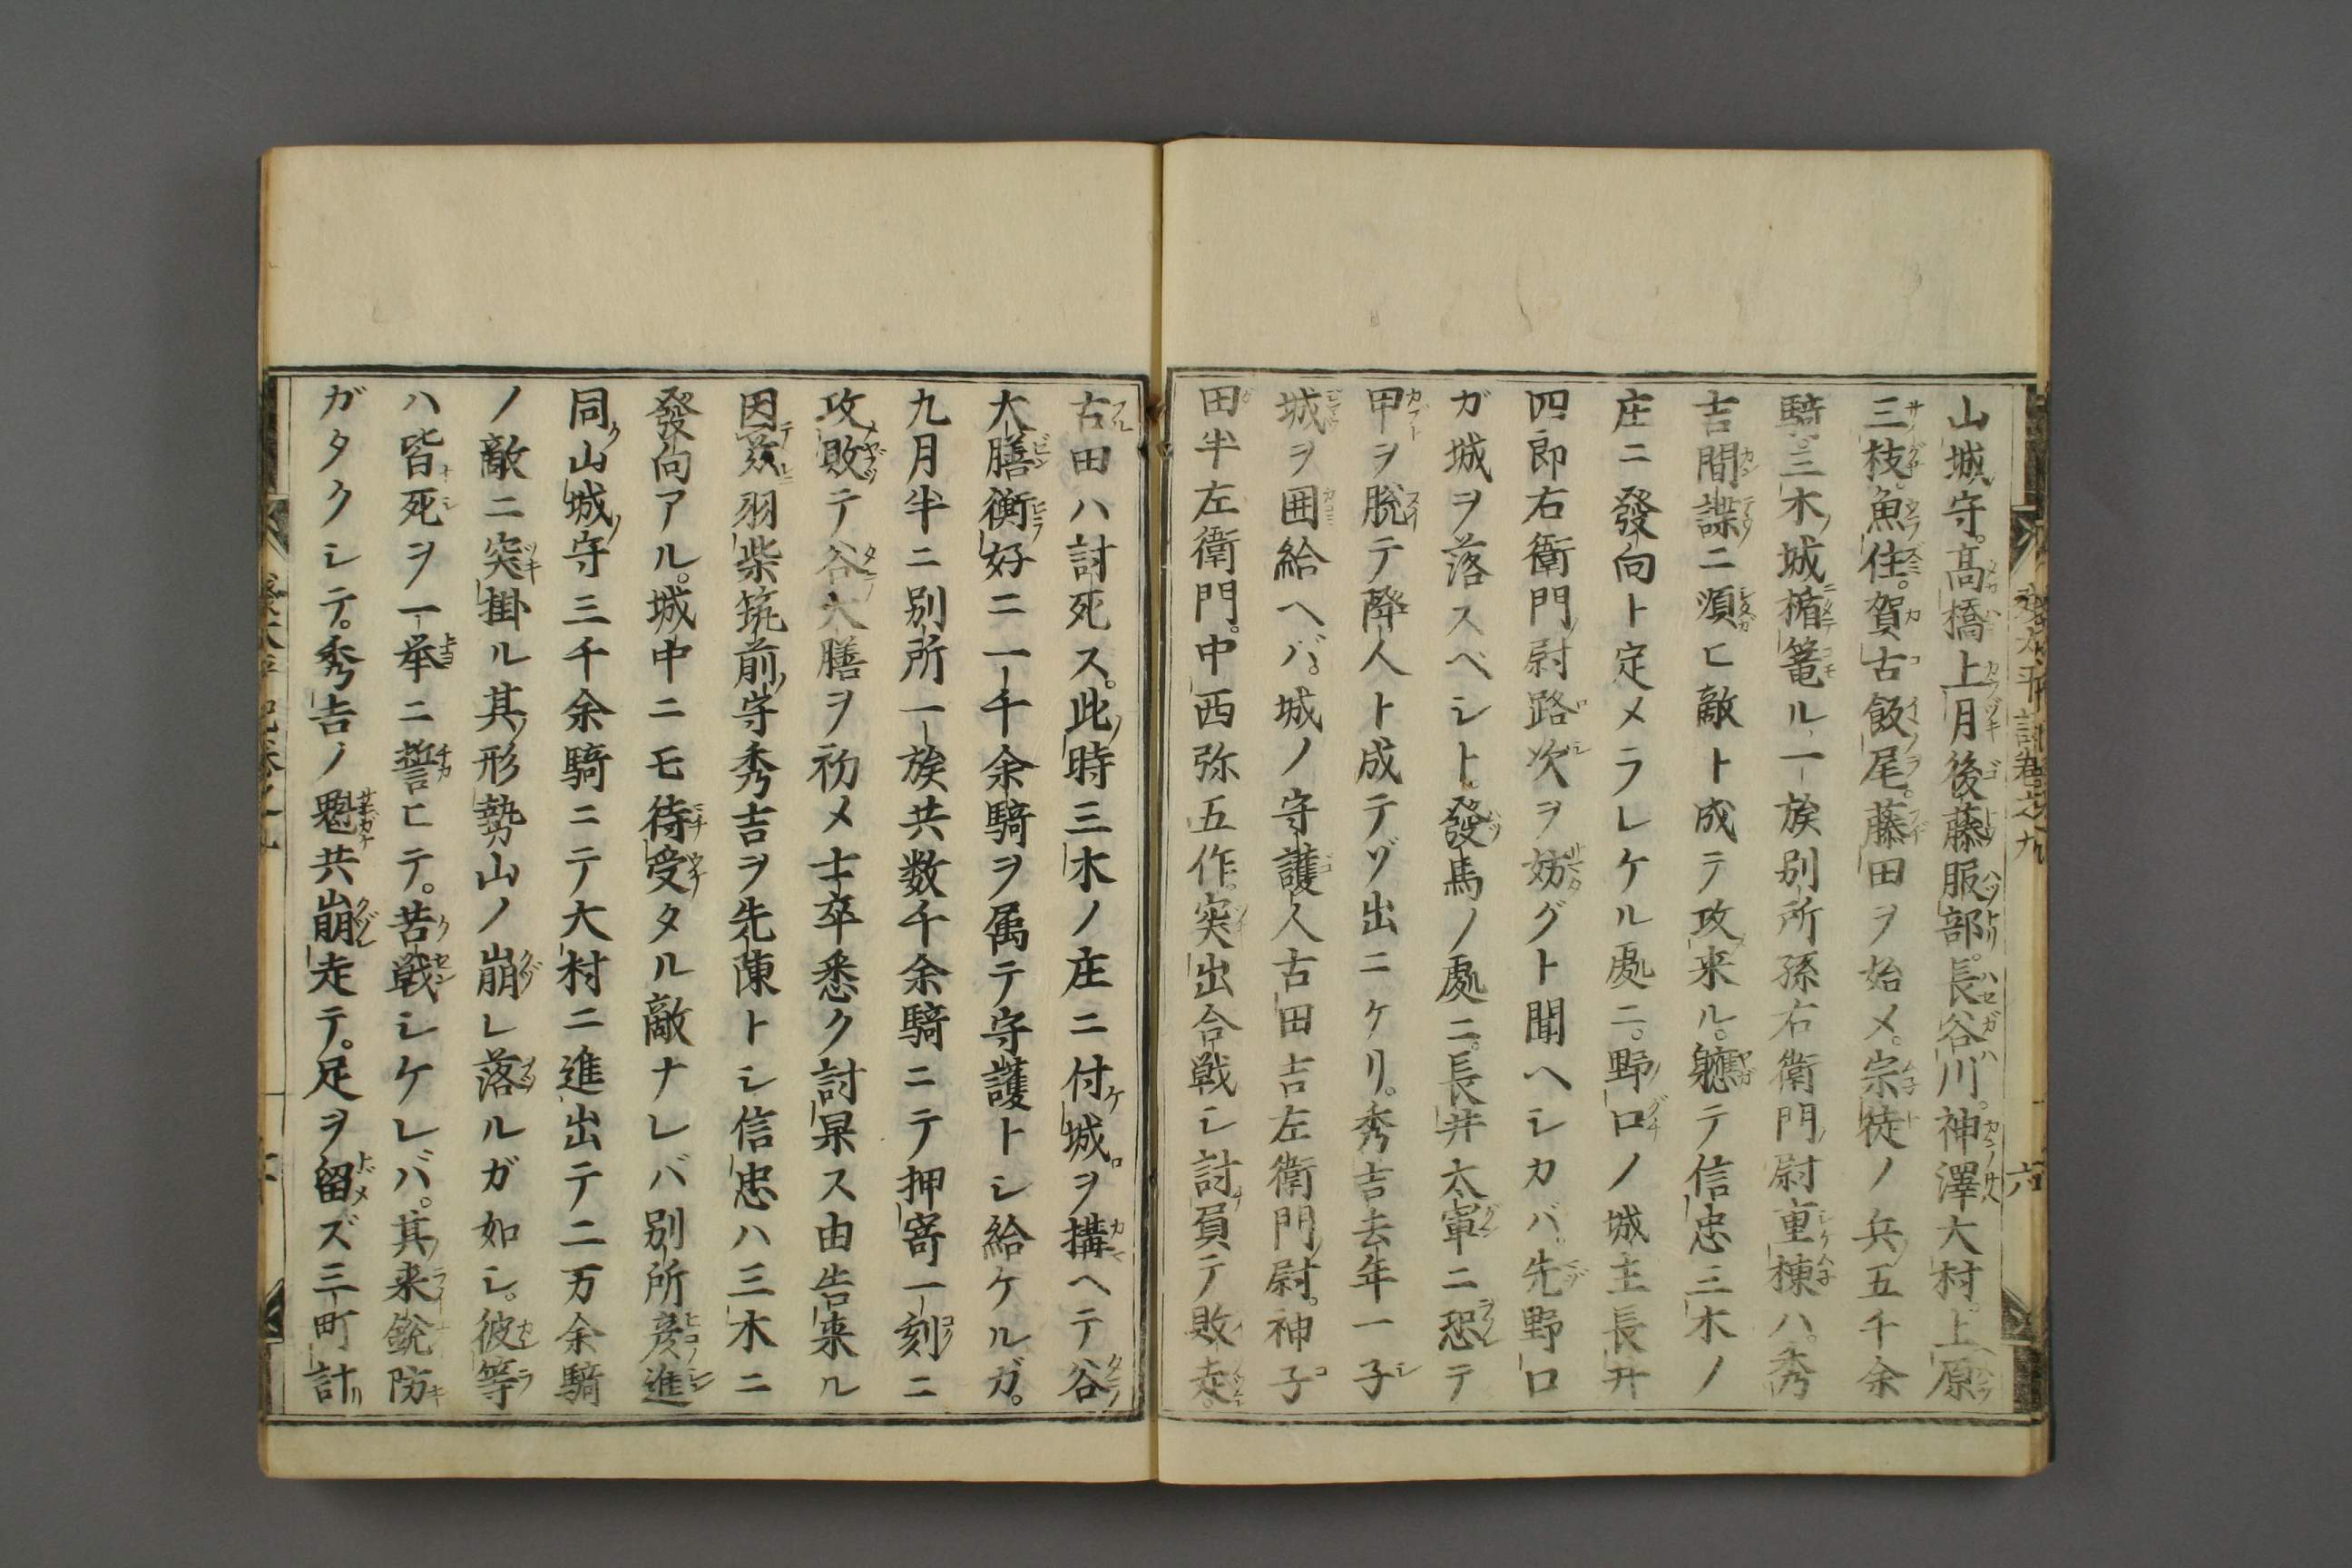 山城守。髙橋上月後藤服部。長谷川。神澤大村。上原
三枝。魚住。賀古飯尾。藤田ヲ始メ。宗徒ノ兵五千余
騎。三木ノ城楯篭ル一族別所孫右衛門尉重棟ハ。秀
吉間諜ニ順ヒ敵ト成テ攻来ル。軈テ信忠三木ノ
庄ニ發向ト定メラレケル處ニ。野口ノ城主長井
四郎右衛門尉路次ヲ妨グト聞ヘシカバ。先野口
ガ城ヲ落スベシト。發馬ノ處ニ。長井太軍ニ恐テ
甲ヲ脱テ降人ト成テゾ出ニケリ。秀吉去年一子
城ヲ囲給ヘバ。城ノ守護人古田吉左衛門尉。神子
田半左衛門。中西弥五作。突出合戦シ討負テ敗走。
古田ハ討死ス。此時三木ノ庄ニ付城ヲ構ヘテ谷
大膳衡好ニ一千余騎ヲ属テ守護トシ給ケルガ。
九月半ニ別所一族共数千余騎ニテ押寄一刻ニ
攻敗テ谷大膳ヲ初メ士卒悉ク討杲ス由告来ル
因茲羽柴筑前守秀吉ヲ先陳トシ信忠ハ三木ニ
發向アル。城中ニモ待受タル敵ナレバ別所彦進
同山城守三千余騎ニテ大村ニ進出テ二万余騎
ノ敵ニ突掛ル其形勢山ノ崩レ落ルガ如シ。彼等
ハ皆死ヲ一挙ニ誓ヒテ。苦戦シケレバ。其来鋭防
ガタクシテ。秀吉ノ魁共崩走テ。足ヲ留ズ三町計